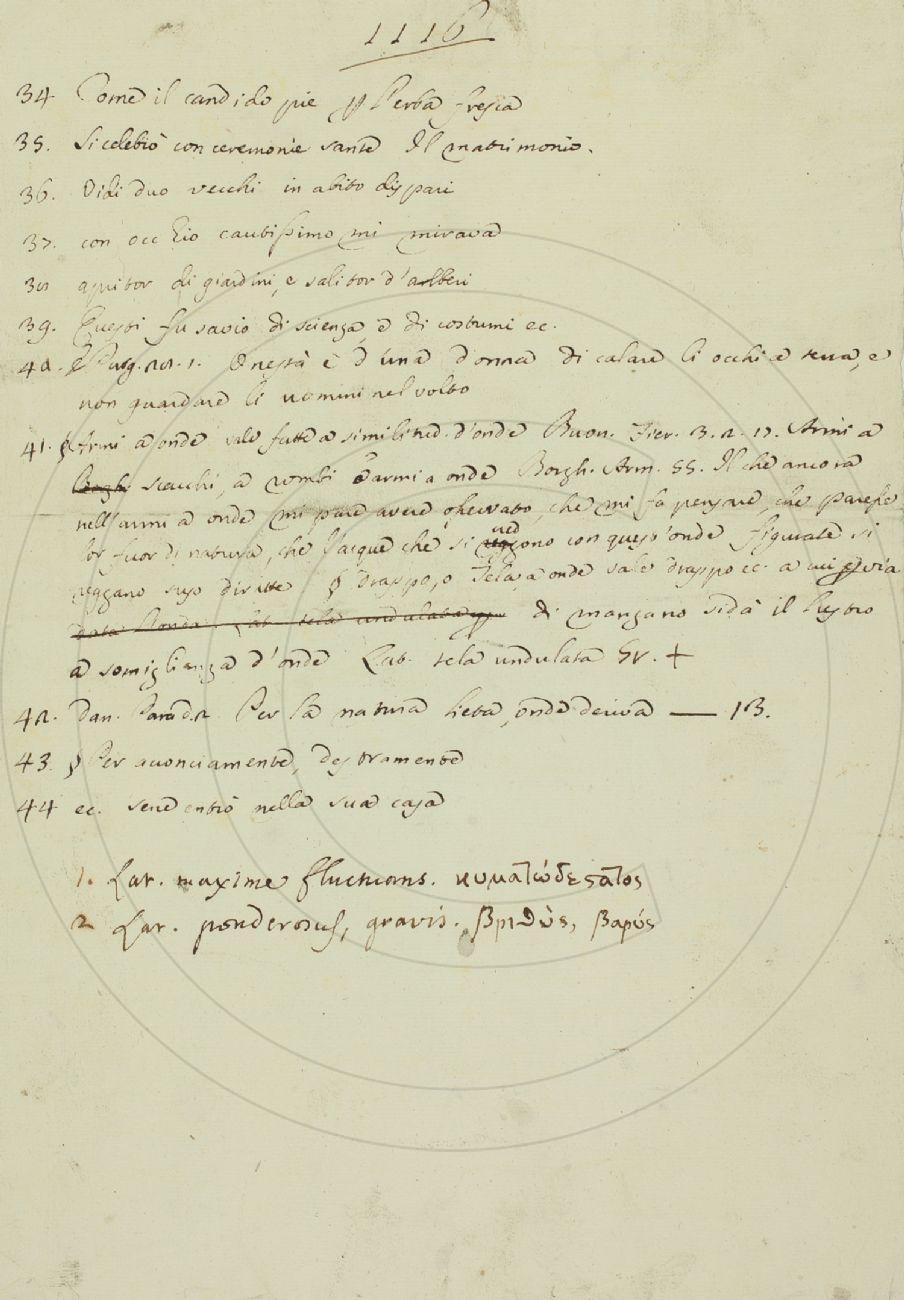 1116
34 Come il candido pie p l'erba fresca
35. Si celebrò con ceremonie sante Il matrimonio.
36. Vidi duo vecchi in abito dispari
37. con occhio cautissimo mi mirava
38 di giardini, e salitor d'alberi
39. Questi fu savio di scienza, e di costumi ec.
40. Purg. 1. Onestà è d'una donna di calare li occhi a terra, e
non guardare li uomini nel volto
41. § Armi a onde vale fatte a similitud. d'onde Buon. Fier. 3. 2. 17. Armi a
scacchi, a rombi e armi a onde Borgh. Arm. 55. Il che ancora
nell'armi a onde mi pare avere osservato, che mi fa pensare, che paresse
lor fuor di natura, che l'acque che si ved ono con queso onde figurate si
reggano suso diritte § drappo, o Tela, a onde vale drappo ec. a cui p via
di mangano si dà il lustro
a somiglianza d'onde Lat. tela undulata Gr. +
42. Dan. Parad. 2 Per la natura lieta, onde deriva — 13.
43. § Per acconciamente, destramente
44 ec. sene entrò nella sua casa
1. Lat. maxime fluctuans. κυματώδεςατος
2 Lat. ponderosus, gravis. βριθὺς, βαρύς